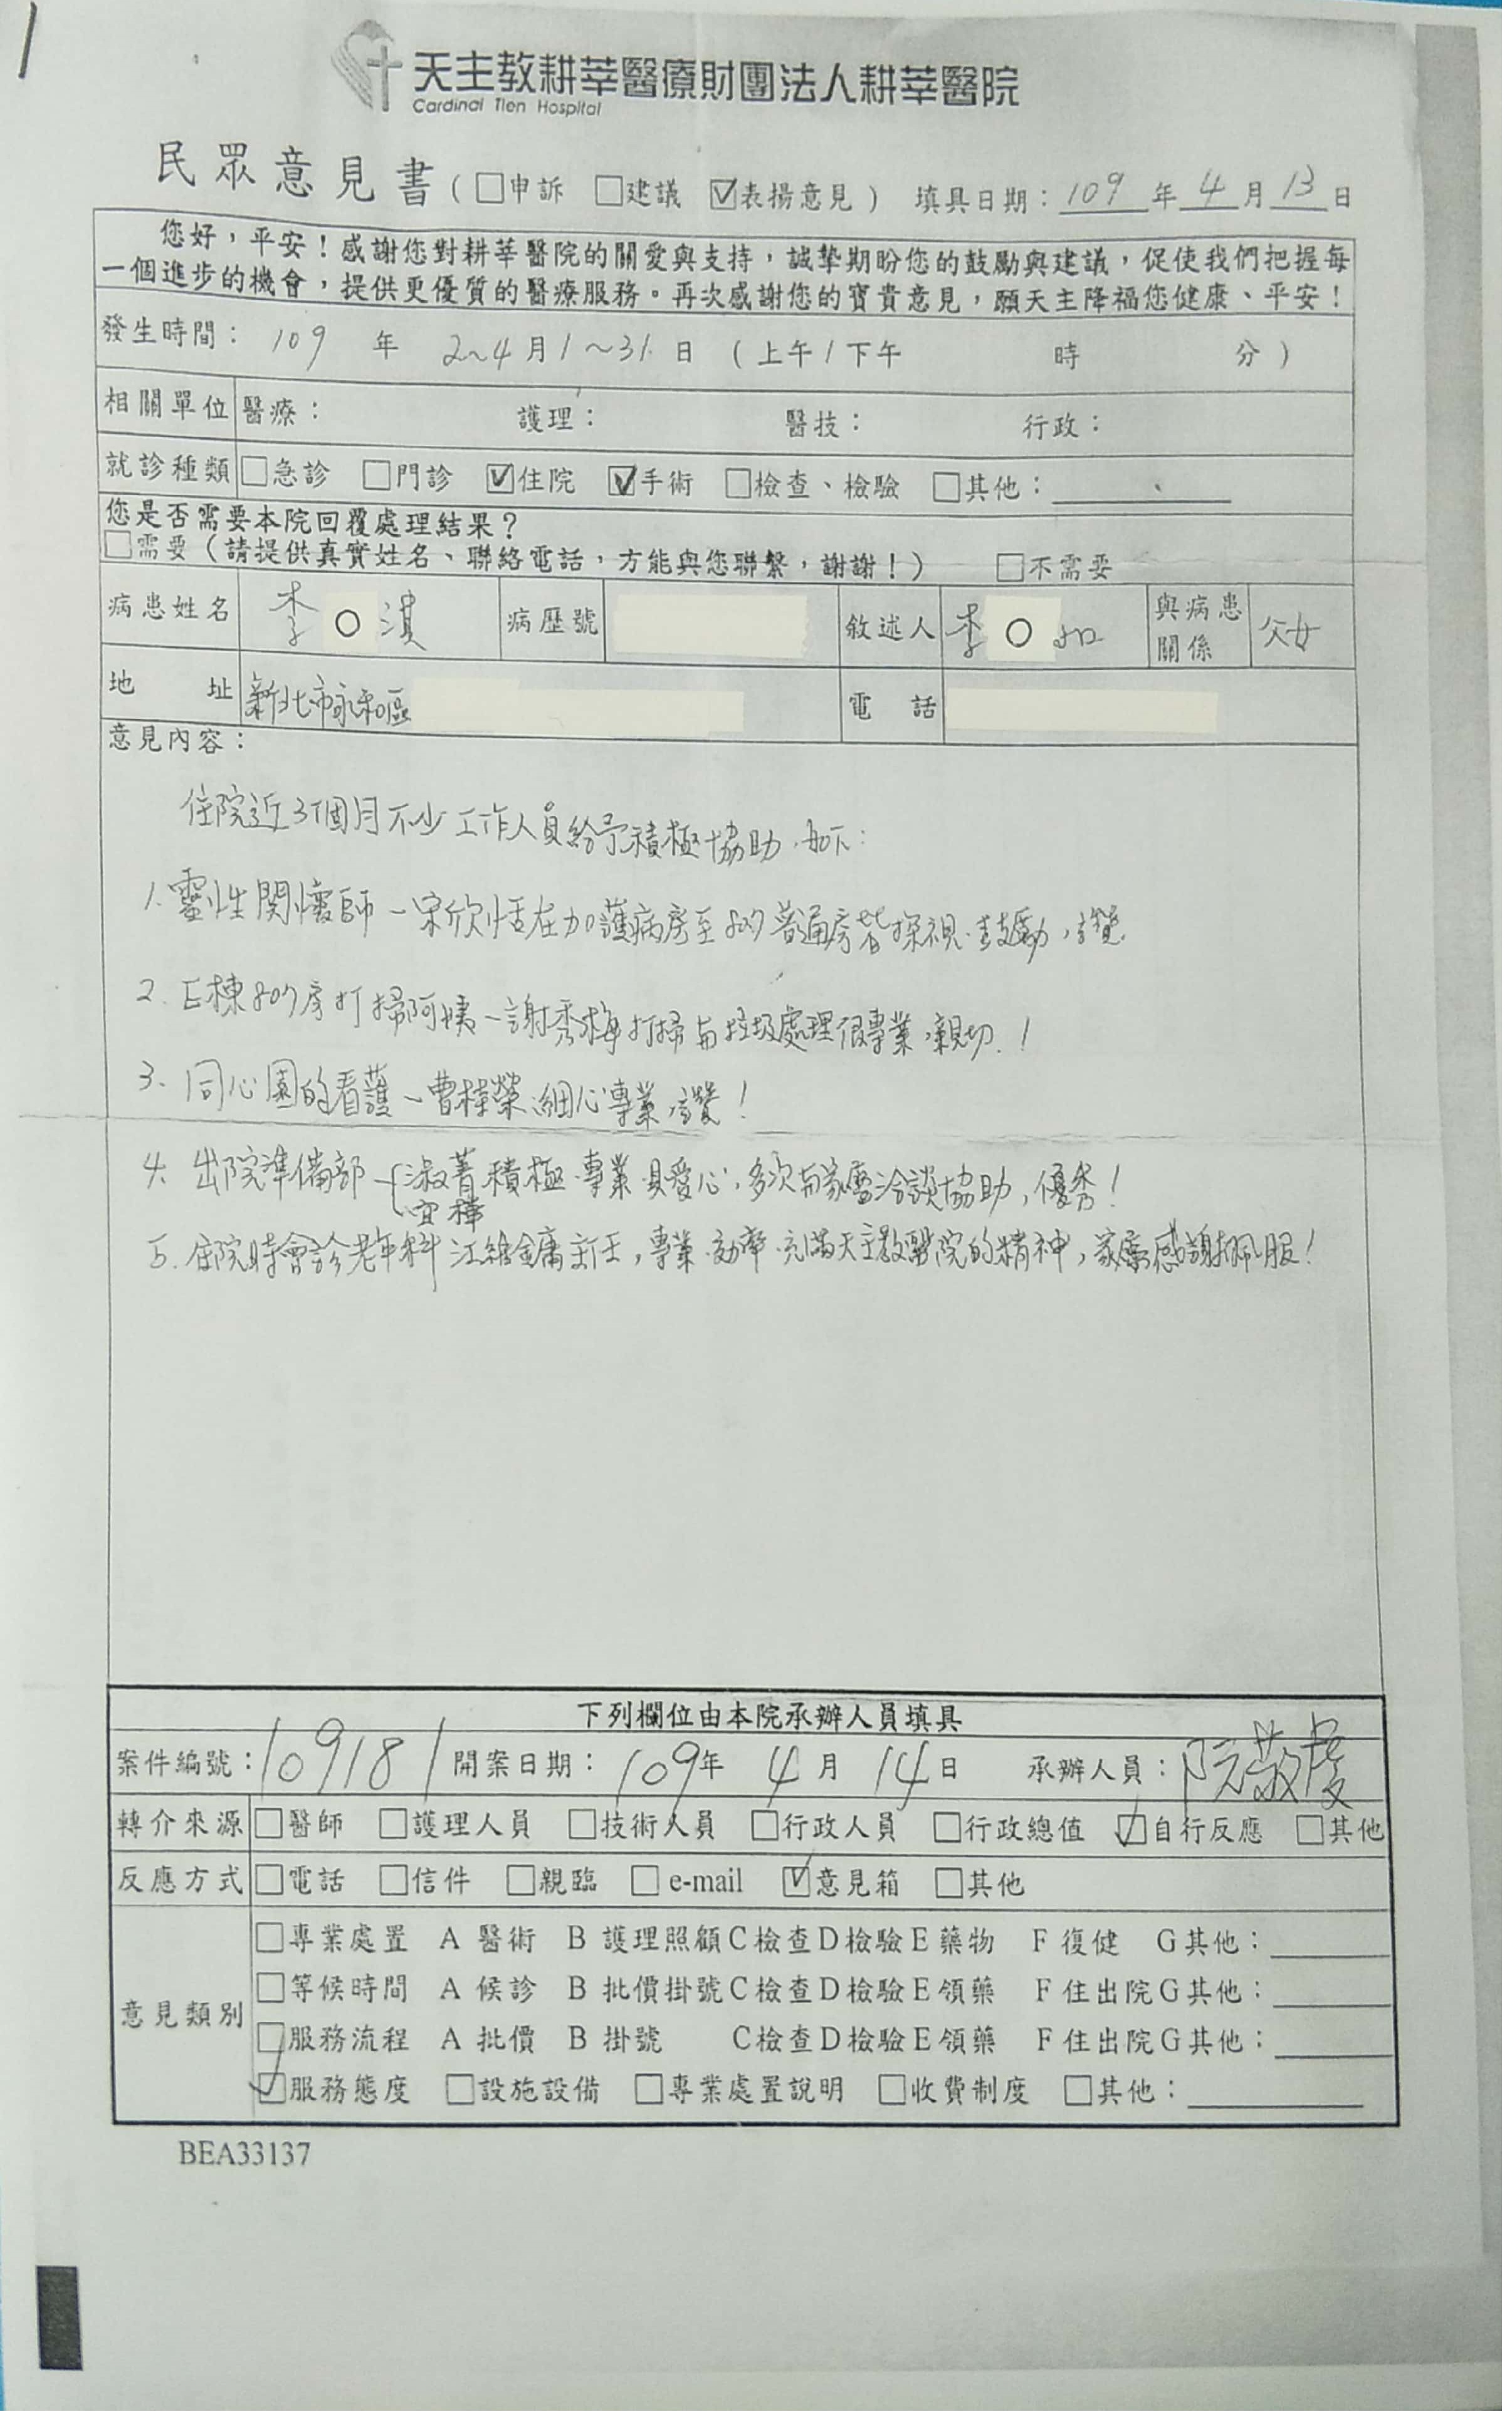 天主教耕莘醫療財團法人耕莘醫院
Cardinal Tien Hospital
民眾意見書(□申訴 □建議 ☑表揚意見) 填具日期:109年4月13日
您好,平安!感謝您對耕莘醫院的關愛與支持,誠摯期盼您的鼓勵與建議,促使我們把握每
一個進步的機會,提供更優質的醫療服務。再次感謝您的寶貴意見,願天主降福您健康、平安!
發生時間:109年 2~4月1~31日 (上午/下午 時 分)
相關單位 醫療: 護理: 醫技: 行政:
就診種類 □急診 □門診 ☑住院 ☑手術 □檢查、檢驗 □其他:
您是否需要本院回覆處理結果?
□需要(請提供真實姓名、聯絡電話,方能與您聯繫,謝謝!) □不需要
病患姓名 李○淇 病歷號 敘述人 李○ 與病患關係 父女
地 址 新北市永和區 電 話
意見內容:
住院近3個月不少工作人員給予積極協助,如下:
1. 靈性関懷師-宋欣恬在加護病房至807普通房皆探視、鼓勵,讚
2. E棟807房打掃阿姨-謝秀梅打掃與垃圾處理很專業,親切!
3. 同心園的看護-曹樟榮,細心專業,讚!
4. 出院準備部-淑菁積極、專業、具愛心,多次與家屬洽談協助,優秀!
宜樺
5. 住院時會診老年科江維鏞主任,專業、効率、充滿天主教醫院的精神,家屬感謝佩服!
下列欄位由本院承辦人員填具
案件編號:109181 開案日期:109年4月14日 承辦人員:阮敬慶
轉介來源 □醫師 □護理人員 □技術人員 □行政人員 □行政總值 ☑自行反應 □其他
反應方式 □電話 □信件 □親臨 □e-mail ☑意見箱 □其他
意見類別 □專業處置 A 醫術 B 護理照顧 C檢查 D檢驗 E藥物 F復健 G其他:
□等候時間 A 候診 B 批價掛號 C檢查 D檢驗 E領藥 F住出院 G其他:
□服務流程 A 批價 B 掛號 C檢查 D檢驗 E領藥 F住出院 G其他:
☑服務態度 □設施設備 □專業處置說明 □收費制度 □其他:
BEA33137